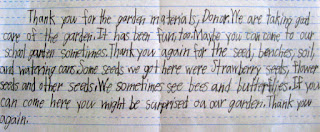 Thank you for the garden materials, Donor. We are taking good
care of the garden. It has been fun, too. Maybe you can come to our
school garden sometimes. Thank you again for the seed, benches, soil,
and watering cans. Some seeds we got here were Strawberry seeds, Flower
seeds and other seeds. We sometimes see bees and butterflies. If you
can come here you might be surprised on our garden. Thank you
again.